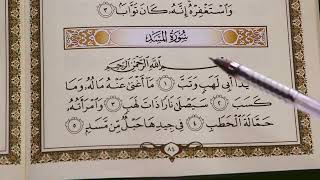 وَاسْتَغْفِرْهُ إِنَّهُ كَانَ تَوَّابًا ٣
سُورَةُ الْمَسَدِ
اللَّهِ الرَّحْمَٰنِ الرَّحِيمِ
يَدَا أَبِي لَهَبٍ وَتَبَّ ١ مَا أَغْنَىٰ عَنْهُ مَالُهُ وَمَا
كَسَبَ ٢ سَيَصْلَىٰ نَارًا ذَاتَ لَهَبٍ ٣ وَامْرَأَتُهُ
حَمَّالَةَ الْحَطَبِ ٤ فِي جِيدِهَا حَبْلٌ مِّن مَّسَدٍ ٥